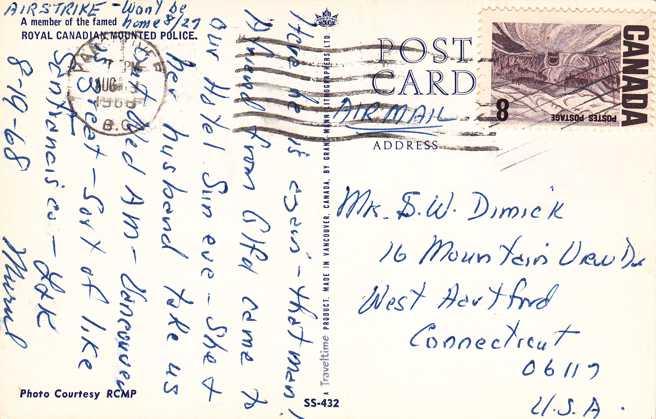 AIRSTRIKE - Won't be
home 8/27
A member of the famed
ROYAL CANADIAN MOUNTED POLICE.
Here he is again - that man!
A friend from Alta came to
our Hotel Sun eve - She &
her husband take us
out Wed AM - Vancouver
is great - Sort of like
San Francisco -
8-19-68
Photo Courtesy RCMP
A Traveltime PRODUCT. MADE IN VANCOUVER, CANADA, BY GRANT-MANN LITHOGRAPHERS LTD.
SS-432
VANCOUVER
PM
AUG
1968
B.C.
POST
CARD
AIR MAIL
ADDRESS
CANADA
8
POSTES POSTAGE
Mr. S.W. Dimick
16 Mountain View Dr
West Hartford
Connecticut
06117
U.S.A.